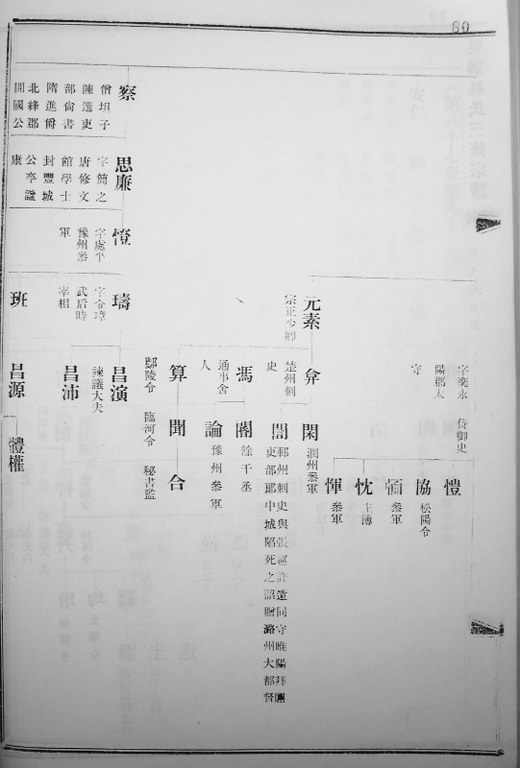 80
字奕永
陽郡太
守
侍御史
愷
協
松陽令
頵
參軍
忱
主簿
惲
參軍
元素
宗正少卿
弇
楚州刺
史
馮
通事舍
人
算
鄢陵令
閑
潤州參軍
誾
鄆州刺史與張巡許遠同守睢陽拜
吏部郎中城陷死之詔贈潞州大都督
閣
餘干丞
論
豫州參軍
聞
臨河令
合
秘書監
察
僧坦子
陳選吏
部尚書
隋進爵
北絳郡
開國公
思廉
字簡之
唐修文
館學士
封豐城
公卒諡
康
憕
字處平
豫州參
軍
璹
字令璋
武后時
宰相
昌演
諫議大夫
昌沛
班
昌源
體權